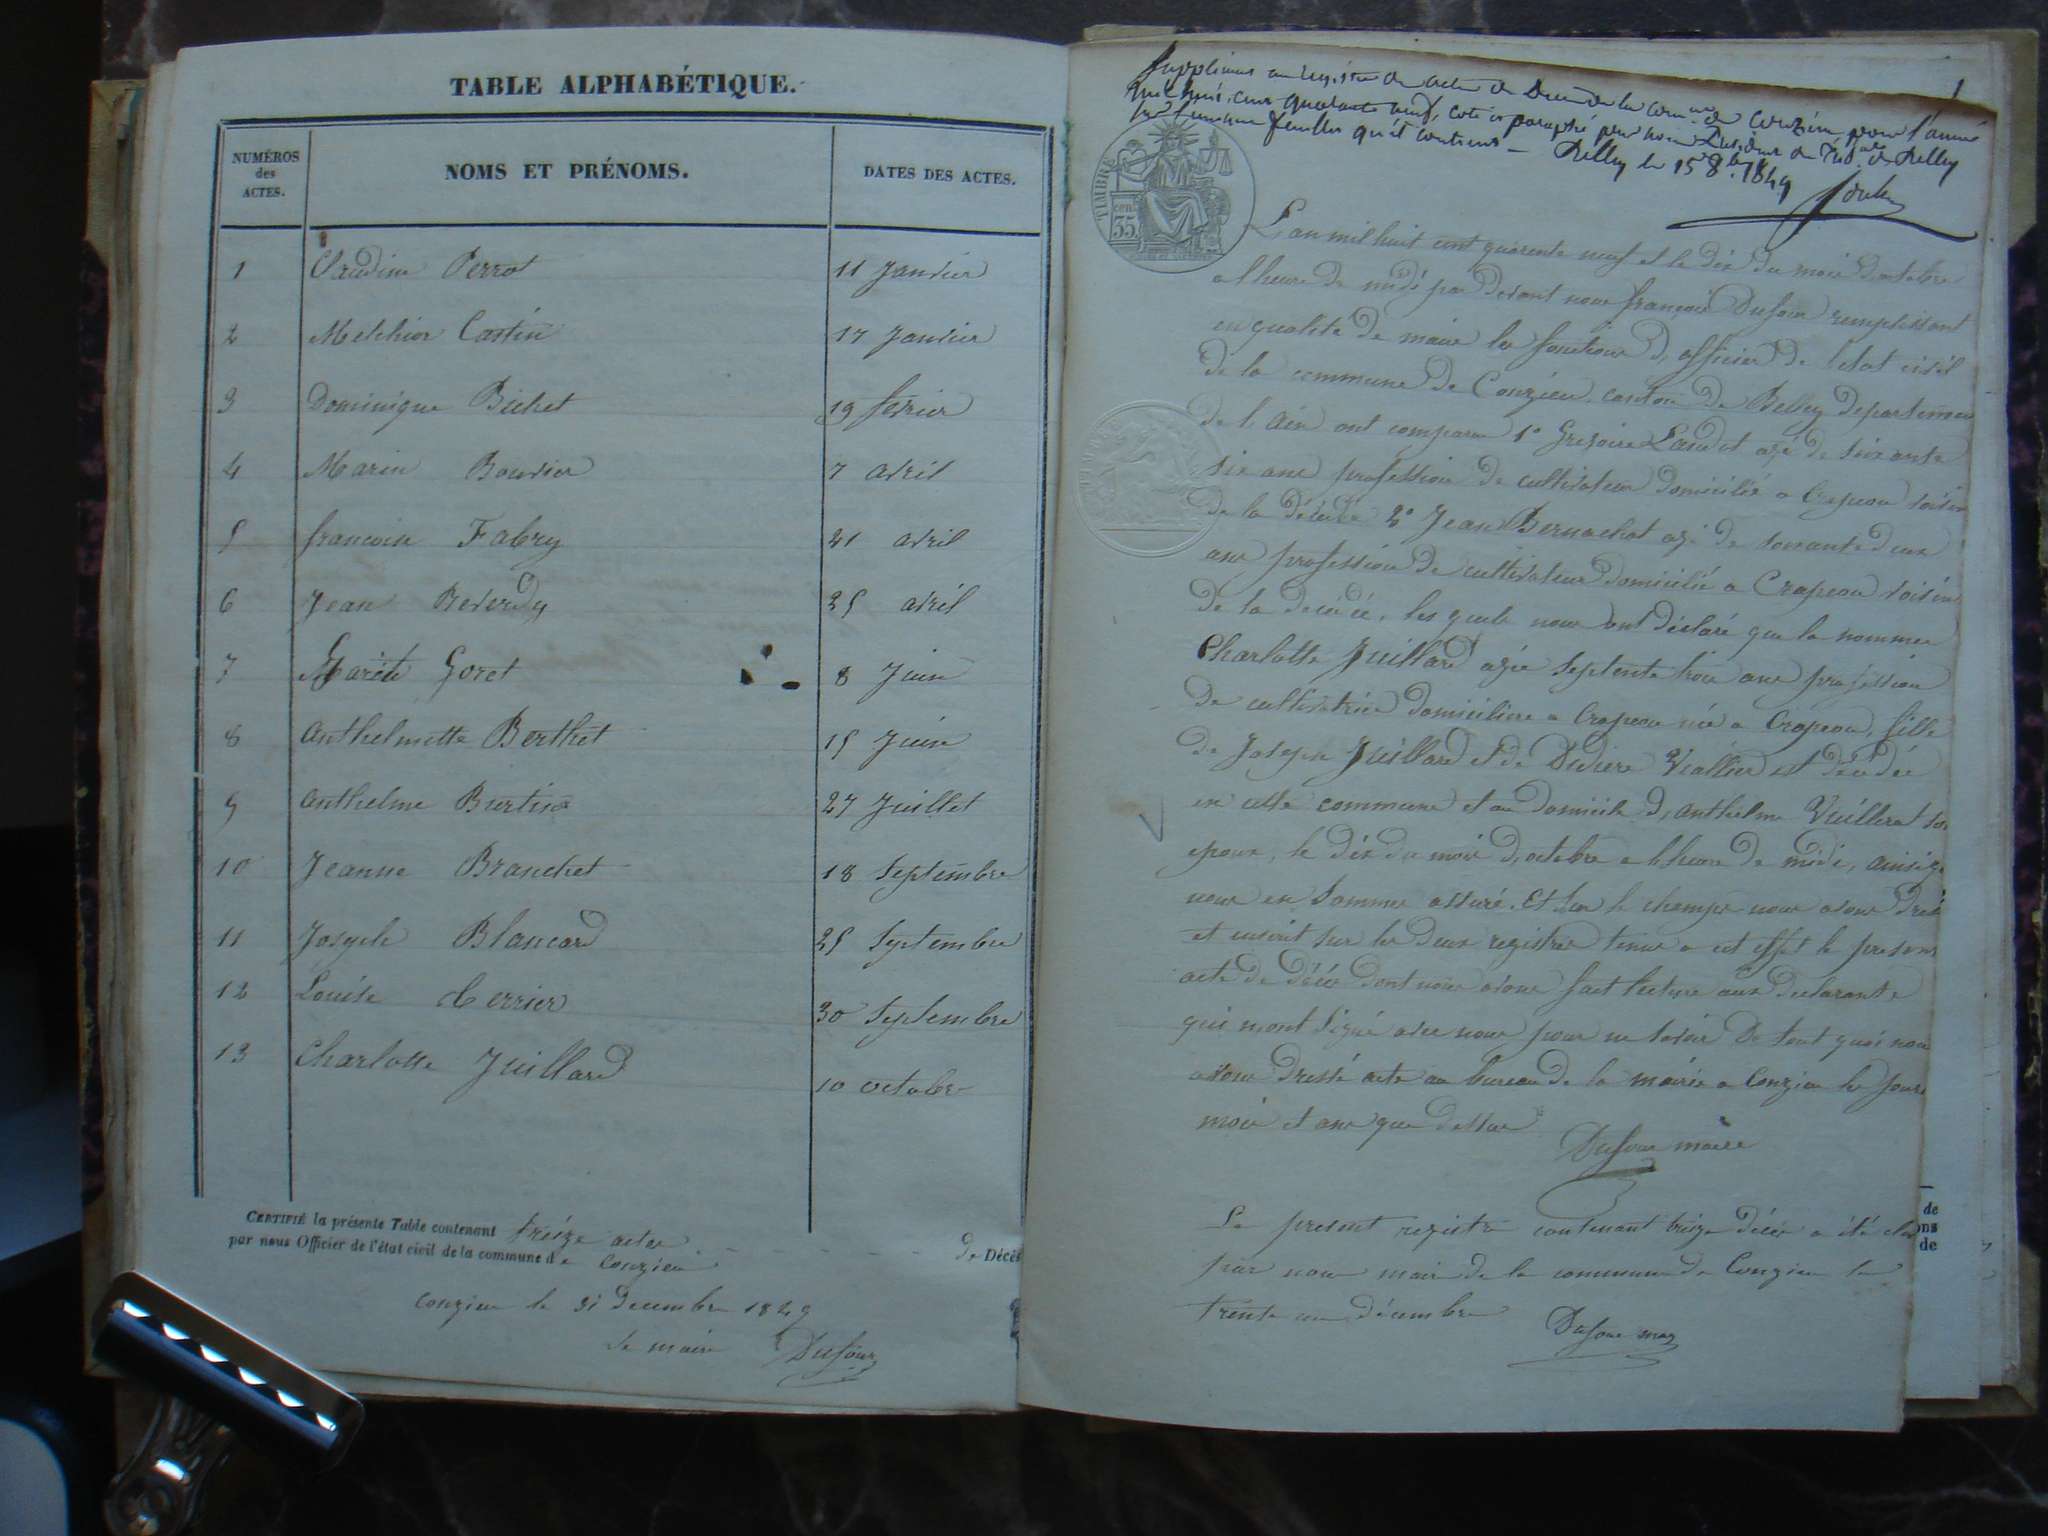 TABLE ALPHABÉTIQUE.
NUMÉROS des ACTES.
NOMS ET PRÉNOMS.
DATES DES ACTES.
1 Claudine Perrot 11 Janvier
2 Melchior Castin 17 Janvier
3 Dominique Bichet 19 fevrier
4 Marin Bouvier 7 avril
5 francoise Fabry 21 avril
6 Jean Reverdy 25 avril
7 Goret 8 Juin
8 Anthelmette Berthet 15 Juin
9 Anthelme Burtin 27 Juillet
10 Jeanne Branchet 18 Septembre
11 Joseph Blancard 25 Septembre
12 Louise Cerrier 30 Septembre
13 Charlotte Juillard 10 octobre
CERTIFIÉ la présente Table contenant treize actes de Décès
par nous Officier de l'état civil de la commune de Conzieu
Conzieu le 31 Decembre 1849
le maire Dufour
1
Supplément au registre des actes de Décès de la comne de Conzieu pour l'année
mil huit cent quarante neuf, coté et paraphé par nous Président du Trib. de Belley
feuilles qu'il contient — Belley le 15 8bre 1849
TIMBRE
35
L'an mil huit cent quarente neuf et le dix du mois d'octobre
a l'heure de midi par devant nous françois Dufour remplissant
en qualité de maire les fonctions d, officier de l'etat civil
de la commune de Conzieu canton de Belley departement
de l'Ain ont comparu 1° Gregoire Landot agé de soixante
six ans profession de cultivateur domicilié a Crapeou voisin
de la décédée 2° Jean Bernachot agé de soixante deux
ans profession de cultivateur domicilié a Crapeou voisin
de la decedée, les quels nous ont déclaré que la nommée
Charlotte Juillard agée septente trois ans profession
de cultivatrice domiciliere a Crapeou née a Crapeou, fille
de Joseph Juillard et de Didiere Viallier est décedée
en cette commune et au domicile d, anthelme Vuillerot son
epoux, le dix du mois d, octobre a l'heure de midi, ainsi que
nous en somme assuré. Et sur le champs nous avons dressé
et inscrit sur les deux registres tenus a cet effet le present
acte de décès dont nous avons fait lecture aux declarants
qui n'ont signé avec nous pour ne savoir De tout quoi nous
avons dressé acte au bureau de la mairie a Conzieu les jours
mois et ans que dessus
Dufour maire
Le present registre contenant treize décès a été clos
par nous maire de la commune de Conzieu le
trente un décembre
Dufour
de
ons
de